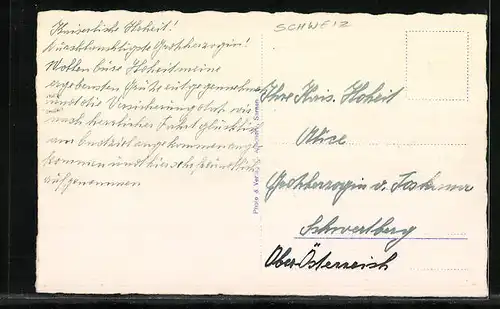 SCHWEIZ
Kaiserliche Hoheit!
Durchlauchtigste Grossherzogin!
Wollen Eure Hoheit meine
ergebensten Grüße entgegennehmen
und die Versicherung dass wir
nach herrlicher Fahrt glücklich
am angekommen
und hier sehr freundlich
aufgenommen
Photo & Verlag Sarnen
Ihre Kais. Hoheit
Alice
Grossherzogin v. Toskana
Schwertberg
Ober Österreich